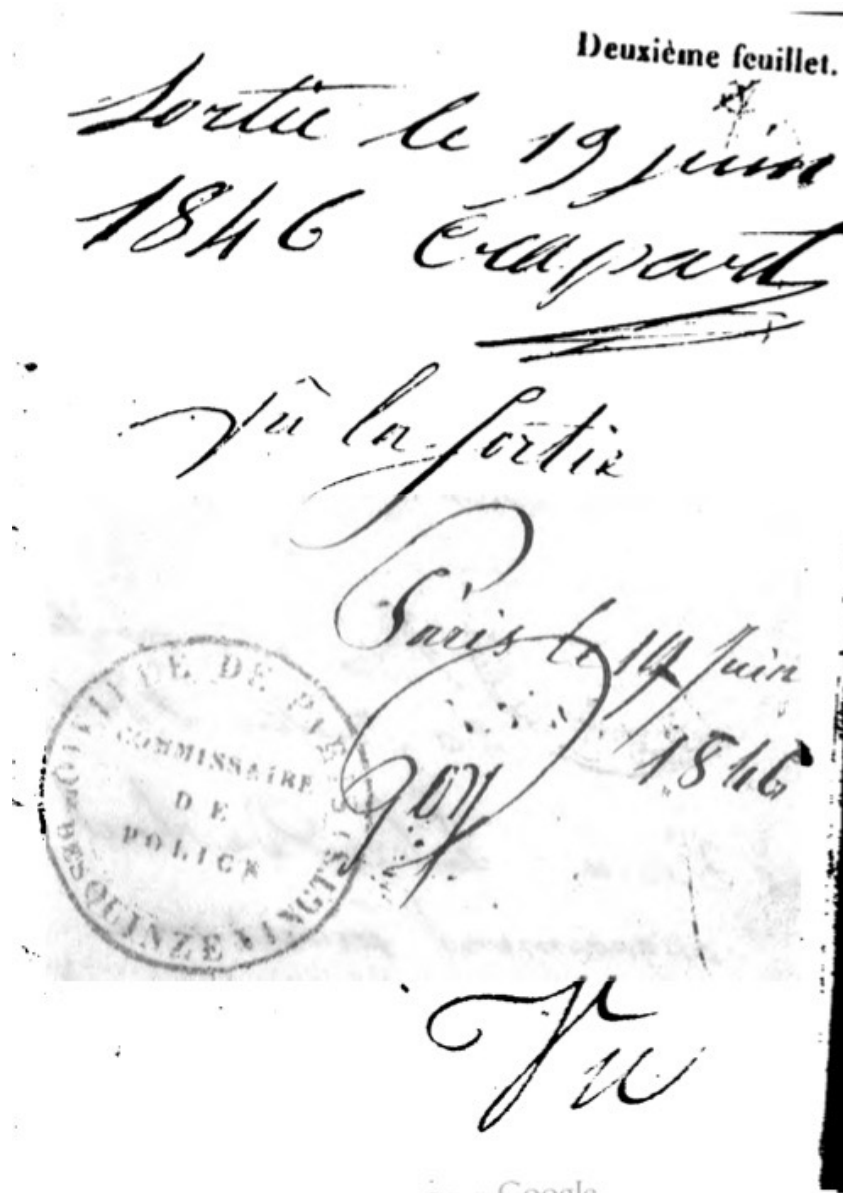 Deuxième feuillet.
Sortie le 19 juin
1846
Vû la Sortie
Paris le 19 Juin
1846
COMMISSAIRE
DE
POLICE
DES QUINZE VINGTS
Vu
Google